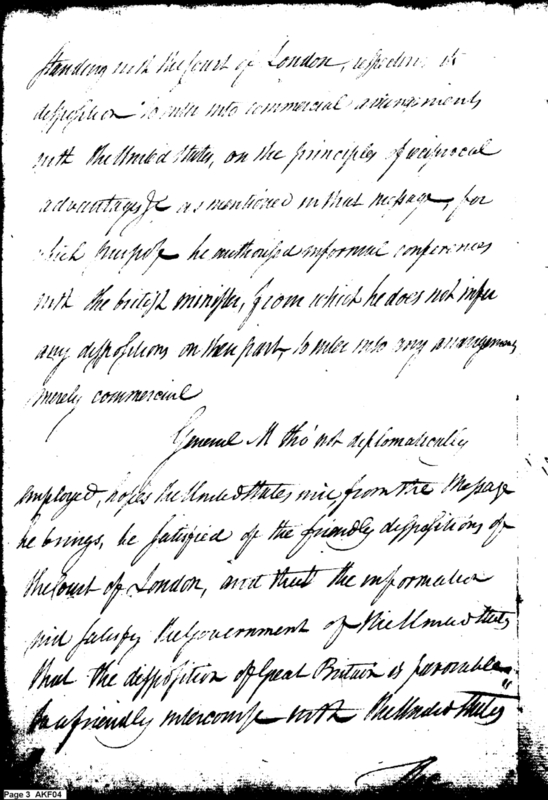 standing with the Court of London, respecting its
disposition to enter into commercial arrangements
with the United States, on the principles of reciprocal
advantages &c as mentioned in that message, for
which purpose he authorised informal conferences
with the british minister, from which he does not infer
any dispositions on their part, to enter into any arrangements
merely commercial
General M tho' not diplomatically
employed, hopes the United States will from the Message
he brings, be satisfied of the friendly dispositions of
the Court of London, and that the information
will satisfy the Government of the United States
that the disposition of Great Britain is favorable
to a friendly intercourse with the United States"
Page 3 AKF04